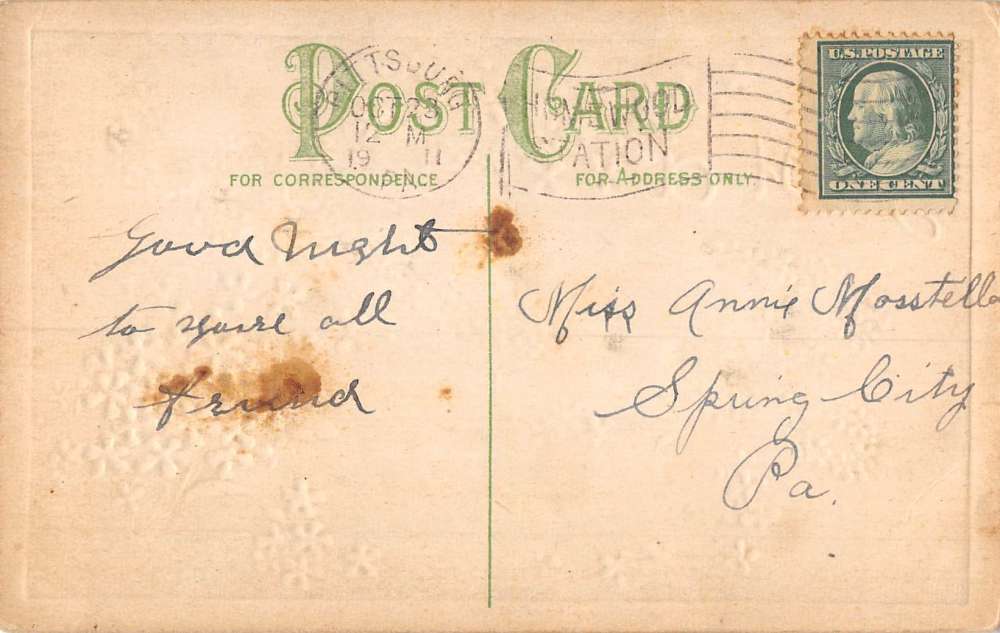 POST CARD
PITTSBURG
OCT 23
12 M
19 11
PA
HOMEWOOD
STATION
FOR CORRESPONDENCE
FOR ADDRESS ONLY.
U.S. POSTAGE
ONE CENT
Good Night
to youre all
friend
Miss Annie Mosstello
Spring City
Pa.